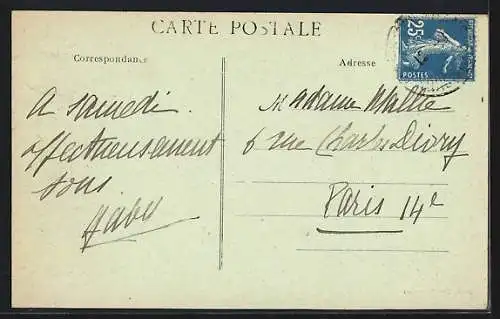 CARTE POSTALE
Correspondance
Adresse
25c
POSTES
A samedi
affectueusement
tous.
Madame
6 rue Charles Divry
Paris 14e